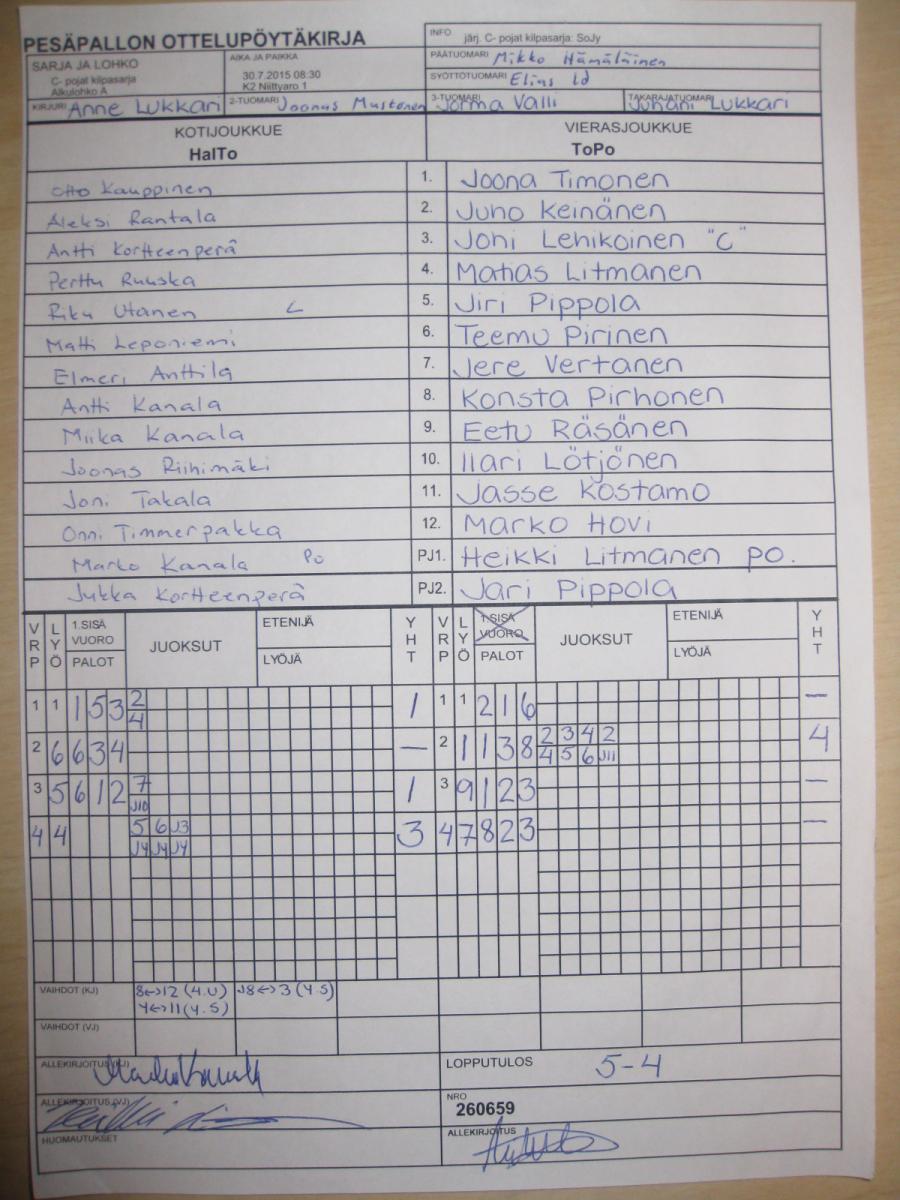 PESÄPALLON OTTELUPÖYTÄKIRJA
INFO järj. C- pojat kilpasarja: SoJy
SARJA JA LOHKO
C- pojat kilpasarja
Alkulohko A
AIKA JA PAIKKA
30.7.2015 08:30
K2 Niittyaro 1
PÄÄTUOMARI Mikko Hämäläinen
SYÖTTÖTUOMARI Elias Ld
KIRJURI Anne Lukkari 2-TUOMARI Joonas Mustonen 3-TUOMARI Jorma Valli TAKARAJATUOMARI Juhani Lukkari
KOTIJOUKKUE VIERASJOUKKUE
HalTo ToPo
Otto Kauppinen 1. Joona Timonen
Aleksi Rantala 2. Juho Keinänen
Antti Kortteenperä 3. Joni Lehikoinen "C"
Perttu Ruuska 4. Matias Litmanen
Riku Utanen C 5. Jiri Pippola
Matti Leponiemi 6. Teemu Pirinen
Elmeri Anttila 7. Jere Vertanen
Antti Kanala 8. Konsta Pirhonen
Miika Kanala 9. Eetu Räsänen
Joonas Riihimäki 10. Ilari Lötjönen
Joni Takala 11. Jasse Kostamo
Onni Timmerpakka 12. Marko Hovi
Marko Kanala Po PJ1. Heikki Litmanen PO.
Jukka Kortteenperä PJ2. Jari Pippola
VRP LYÖ 1.SISÄ VUORO PALOT JUOKSUT ETENIJÄ LYÖJÄ YHT VRP LYÖ 1.SISÄ VUORO PALOT JUOKSUT ETENIJÄ LYÖJÄ YHT
1 1 1 5 3 2 1 1 1 2 1 6 –
4
2 6 6 3 4 – 2 1 1 3 8 2 3 4 2 4
4 5 6 J11
3 5 6 1 2 7 1 3 9 1 2 3 –
J10
4 4 5 6 J3 3 4 7 8 2 3 –
J4 J4 J4
VAIHDOT (KJ) 8↔12 (4.U) J8↔3 (4.S)
4↔11 (4.S)
VAIHDOT (VJ)
ALLEKIRJOITUS (KJ) LOPPUTULOS 5-4
ALLEKIRJOITUS (VJ) NRO
260659
HUOMAUTUKSET ALLEKIRJOITUS